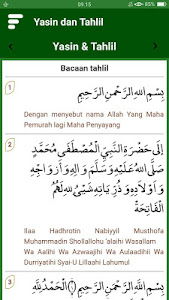 09.15
Yasin dan Tahlil
Yasin & Tahlil
Bacaan tahlil
1
بِسْمِ اللهِ الرَّحْمٰنِ الرَّحِيْمِ
Dengan menyebut nama Allah Yang Maha
Pemurah lagi Maha Penyayang
2
اِلَى حَضْرَةِ النَّبِيِّ الْمُصْطَفَى مُحَمَّدٍ
صَلَّى اللهُ عَلَيْهِ وَسَلَّمَ وَاٰلِهِ وَاَزْوَاجِهِ
وَاَوْلَادِهِ وَذُرِّيَّاتِهِ شَيْءٌ لِلّٰهِ لَهُمُ
الْفَاتِحَةُ
Ilaa Hadhrotin Nabiyyil Musthofa
Muhammadin Shollallohu 'alaihi Wasallam
Wa Aalihi Wa Azwaajihi Wa Aulaadihii Wa
Durriyatihi Syai-U Lillaahi Lahumul
3
بِسْمِ اللهِ الرَّحْمٰنِ الرَّحِيْمِ اَلْحَمْدُ لِلّٰهِ